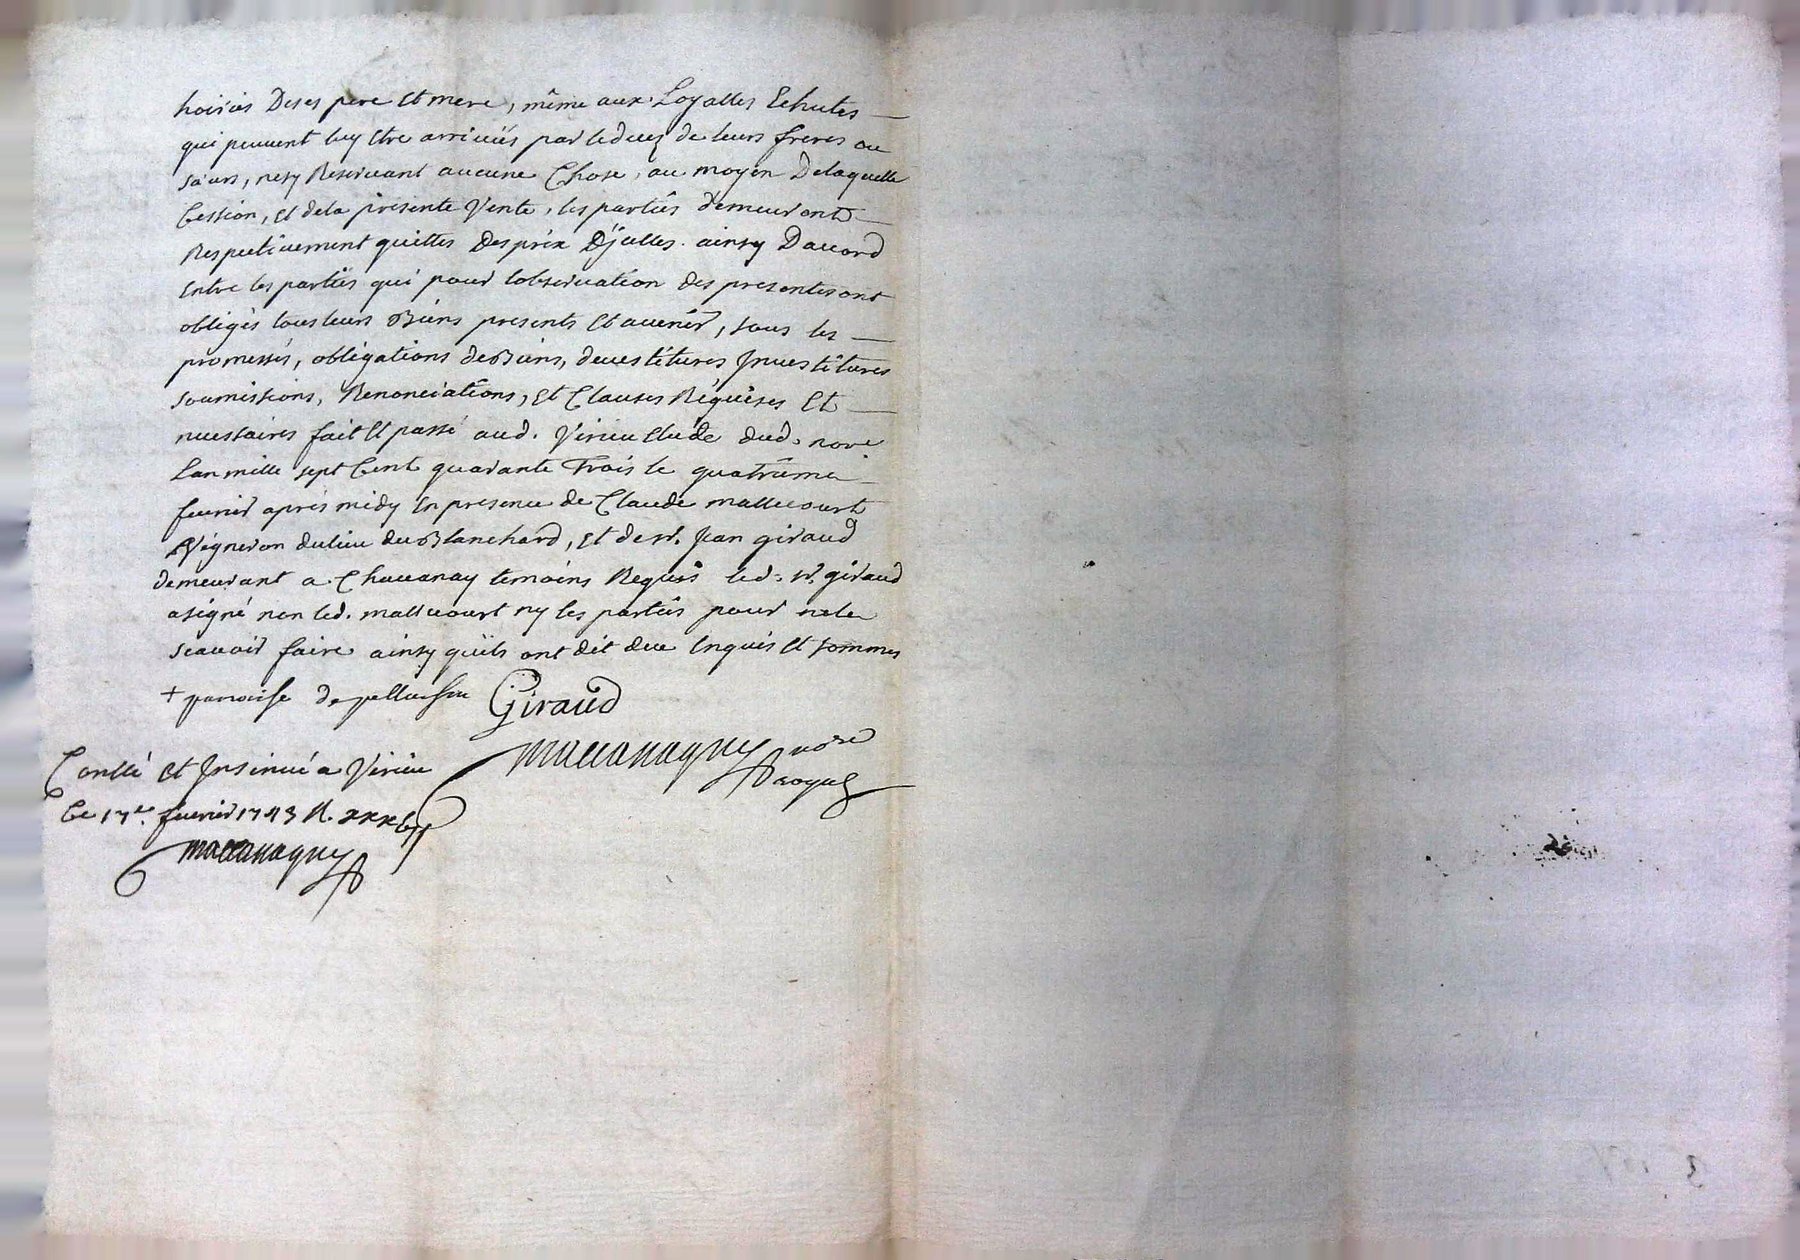 hoiries Deses pere Et mere, même aux Loyalles Echutes
qui peuvent luy Etre arrivées par le decez de leurs freres ou
sœurs, nesy Reservant aucune Chose, au moyen Delaquelle
Cession, Et dela présente Vente, les parties demeuront
Respectivement quittes Desprix D'jcelles. ainsy Daccord
Entre les parties qui pour lobservation des presentes ont
obligés tous leurs Biens presents Et avenir, sous les
promesses, obligations de Biens, devestitures Jnvestitures
soumissions, Renonciations, Et Clauses Requises Et
necessaires fait Et passé aud. Virieu Etude dud. nore
Lan mille sept Cent quarante Trois le quatrieme
fevrier après midy En presence de Claude mallecourt
Vigneron dulieu du Blanchard, Et de sr. Jean giraud
demeurant a Chavanay temoins Requis led. sr. giraud
a signé non led. mallecourt ny les parties pour nele
scavoir faire ainsy quils ont dit deue Enquis Et sommes
+ parroisse de pellussin Giraud
nore
Conllé et Jnsinué a Virieu
Royal
Le 17e. fevrier 1743 R.